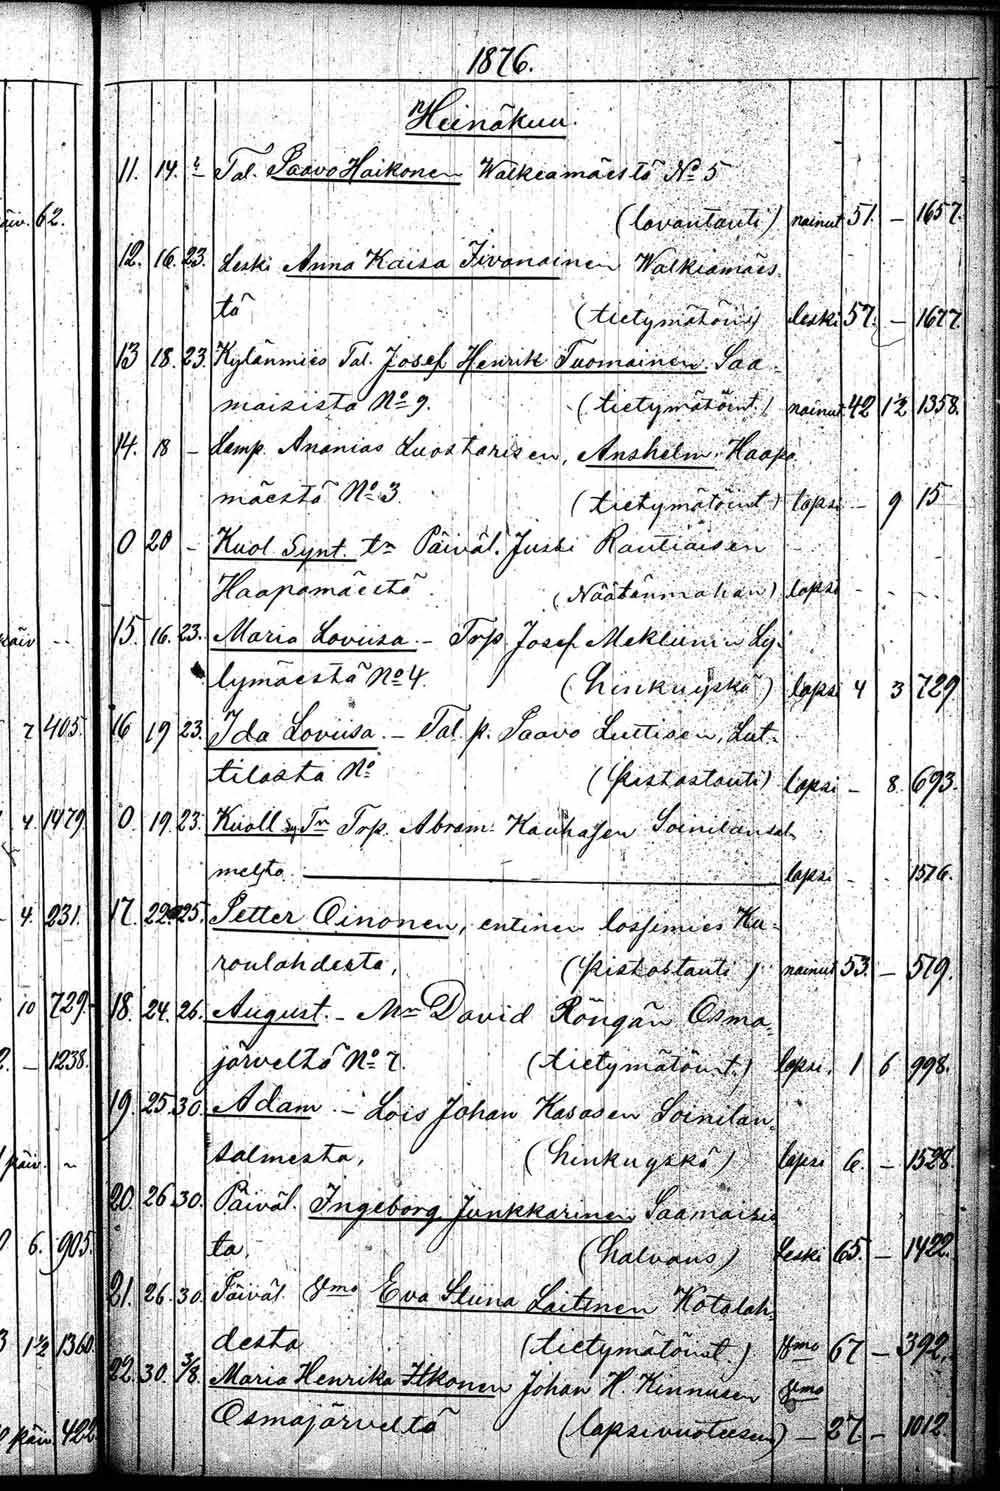 1876.
Heinäkuu.
11. 14. Tal. Paavo Haikonen Walkeamäestä No 5
äiv. 62. (lavantauti) nainut 51. — 1657.
12. 16. 23. Leski Anna Kaisa Iivanainen Walkiamäes
tä (tietymätöin) leski 57. — 1677.
13 18. 23. Kylänmies Tal. Josef Henrik Tuomainen Saa-
maisista No 9. (tietymätöint.) nainut 42 1½ 1358.
14. 18 — Lamp. Ananias Luostarisen, Anshelm Haapa
mäestä No 3. (tietymätöint) lapsi — 9 15
0 20 — Kuol Synt. tr Päiväl. Jussi Rautiaisen
Haapamäestä. (Näätänmahan) lapsi - - -
päiv -- 15. 16. 23. Maria Loviisa — Trp. Josef Meklunin Ly-
lymäestä No 4. (hinkuyskä) lapsi 4 3 729
7 405. 16 19 23. Ida Loviisa. — Tal. p. Paavo Luttisen, Lut-
tilasta No (pistostauti) lapsi — 8. 693.
4. 1479 0. 19. 23. Kuoll sy. Tr Trp. Abram Kauhasen Soinilansal
mesta lapsi - - 1576.
4. 231. 17. 22. 25. Petter Oinonen, entinen lossimies Ku-
roulahdesta, (pistostauti) nainut 53. — 519.
10 729. 18. 24. 26. August. — Mn David Röngän Osma-
järveltä No 7. (tietymätöint.) lapsi. 1 6 998.
2. — 1238.
19. 25. 30. Adam — Lois Johan Kasasen Soinilan-
salmesta, (hinkuyskä) lapsi 6. — 1528.
päiv. ~
20. 26. 30. Päiväl. Ingeborg Junkkarinen Saamaisis
6. 905. ta, (halvaus) Leski 65. — 1422.
21. 26. 30. Päiväl. vmo Eva Stiina Laitinen Kotalah-
3 1½ 1360. desta (tietymätöint.) vmo 67 — 392.
22. 30. 3/8. Maria Henrika Itkonen Johan H. Kinnusen vmo
päiv. 422 Osmajärveltä (lapsivuoteesen) — 27. — 1012.